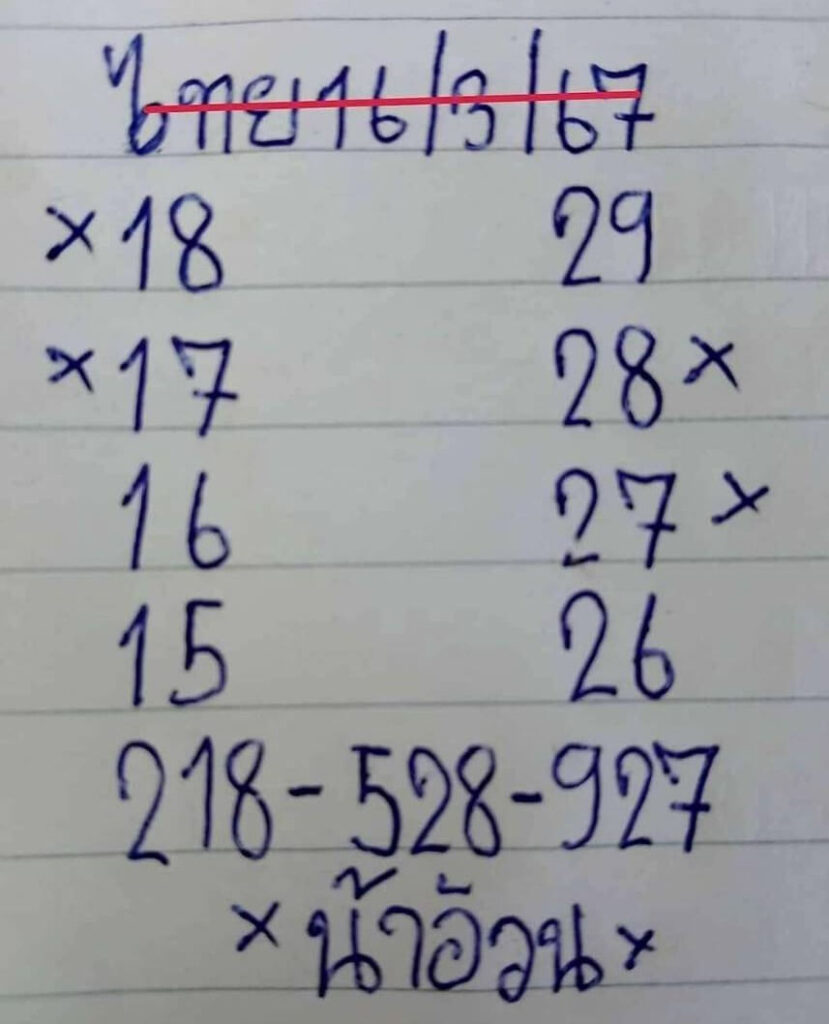 ไทย16/3/67
×18 29
×17 28×
16 27×
15 26
218-528-927
×น้าอ้วน×